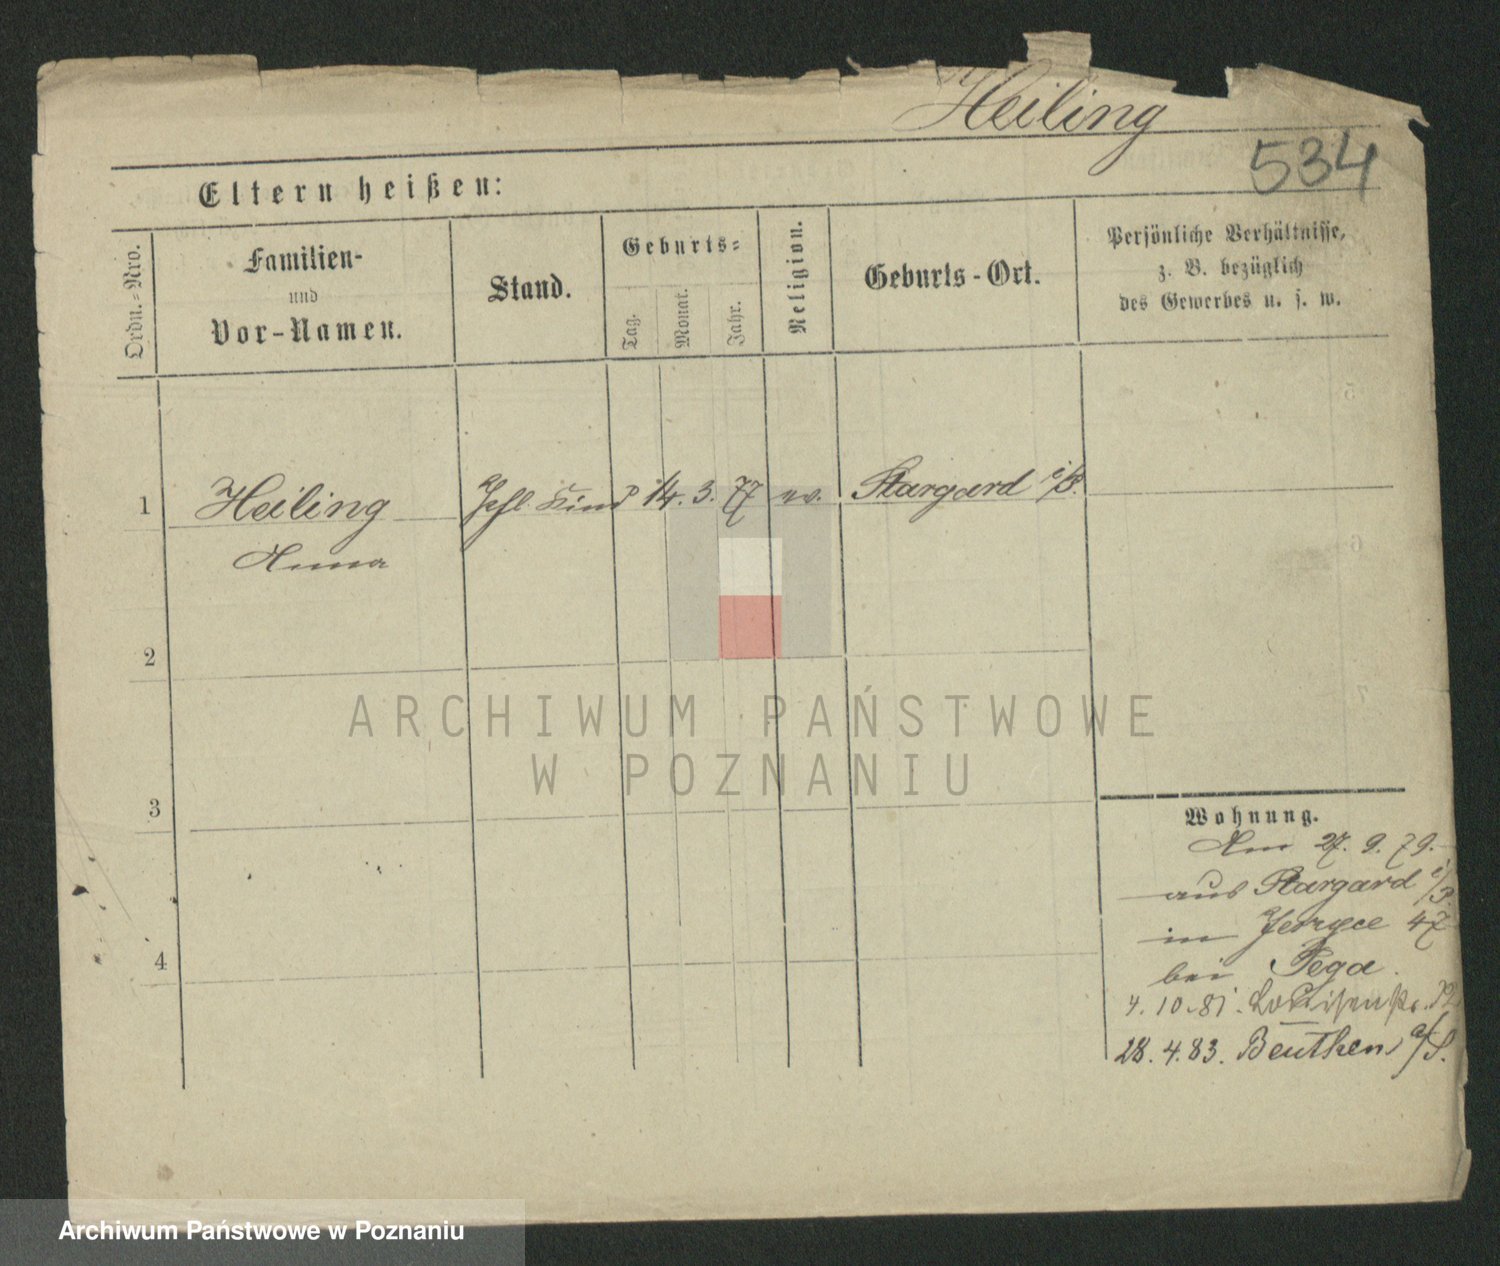 Heiling
534
Eltern heißen:
Ordn.-Nro.
Familien-
und
Vor-Namen.
Stand.
Geburts-
Tag.
Monat.
Jahr.
Religion.
Geburts-Ort.
Persönliche Verhältnisse,
z. B. bezüglich
des Gewerbes u. s. w.
1 Heiling Kind 14. 3. 77 ev. Stargard i/P.
Anna
2
3
4
Wohnung.
Am 27. 9. 79.
aus Stargard i/P.
in Jerzyce 47
bei Pega.
4. 10. 81.
28. 4. 83. Beuthen a/S.
ARCHIWUM PAŃSTWOWE
W POZNANIU
Archiwum Państwowe w Poznaniu